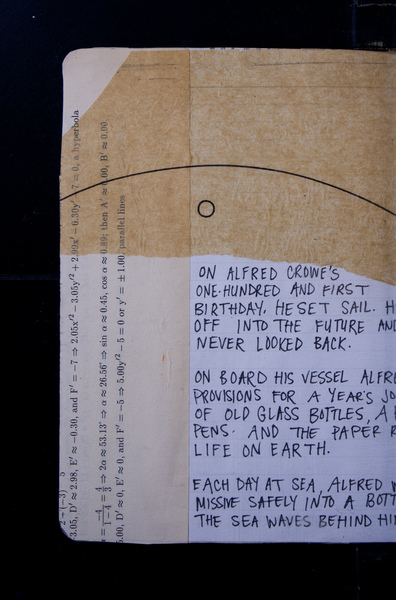 3.05, D' ≈ 2.98, E' ≈ −0.30, and F' = −7 ⇒ 2.05x'² − 3.05y'² + 2.99x' − 0.30y' − 7 = 0, a hyperbola
= −4/(1−4) = 4/3 ⇒ 2α ≈ 53.13° ⇒ α ≈ 26.56° ⇒ sin α ≈ 0.45, cos α ≈ 0.89; then A' ≈ 0.00, B' ≈ 0.00
5.00, D' ≈ 0, E' ≈ 0, and F' = −5 ⇒ 5.00y'² − 5 = 0 or y' = ±1.00, parallel lines
ON ALFRED CROWE'S
ONE-HUNDRED AND FIRST
BIRTHDAY, HE SET SAIL. H
OFF INTO THE FUTURE AND
NEVER LOOKED BACK.
ON BOARD HIS VESSEL ALFRE
PROVISIONS FOR A YEAR'S JO
OF OLD GLASS BOTTLES, A
PENS. AND THE PAPER R
LIFE ON EARTH.
EACH DAY AT SEA, ALFRED W
MISSIVE SAFELY INTO A BOTT
THE SEA WAVES BEHIND HI